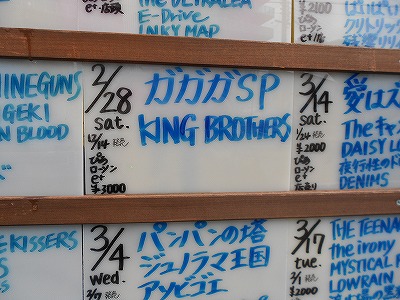 THE ULTRALEA
E-Drive
INKY MAP
e+・店頭
¥2100
ローソン
e+/店
クリトリック
INEGUNS
GEKI
N BLOOD
2/28
sat.
12/14
ぴあ
ローソン
e+
¥3000
ガガガSP
KING BROTHERS
3/14
sat.
1/24
¥2000
ぴあ
ローソン
e+
愛はズ
Theキャ
DAISY L
夜行性の
DENIMS
E KISSERS
3/4
wed.
パンパンの塔
ジュノラマ王国
アソビゴエ
3/17
tue.
2/1
¥2000
THE TEENA
the irony
MYSTICAL F
LOWRAIN